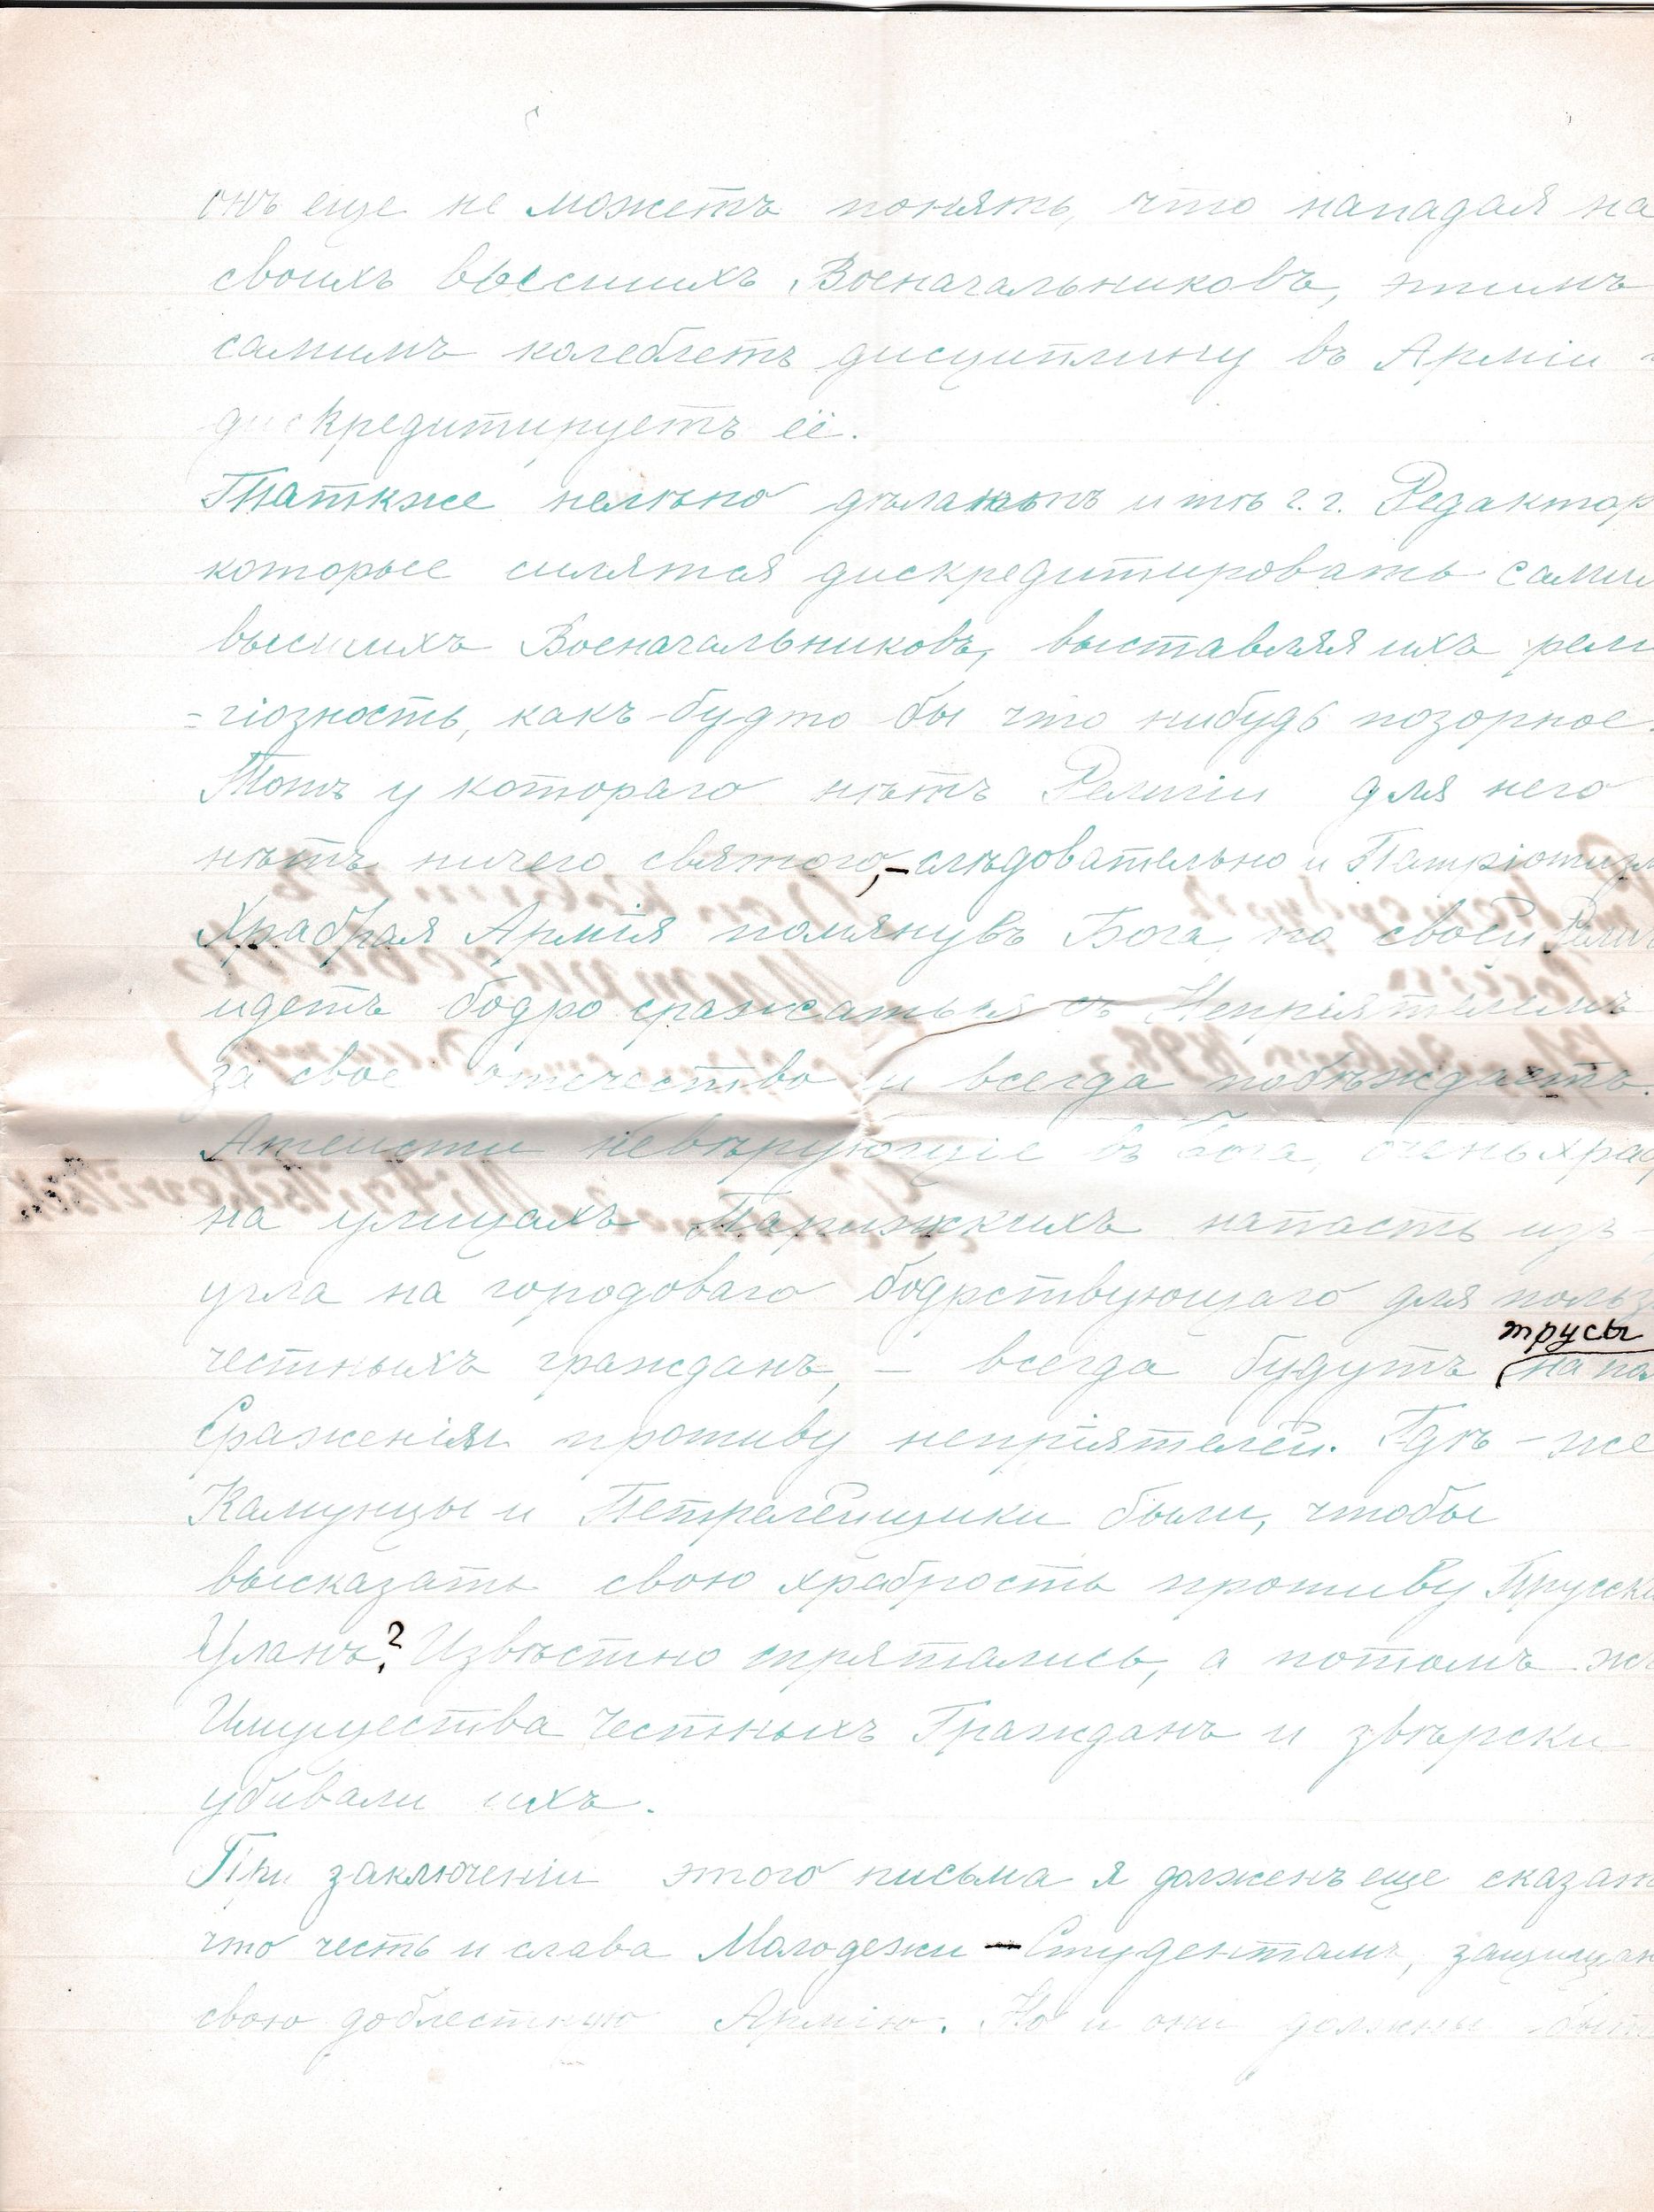 онъ еще не можетъ понять, что нападая на
своихъ высшихъ Военачальниковъ, этимъ
самимъ колеблетъ дисциплину въ Арміи
дискредитируетъ её.
Таткже нелѣпо дѣлаютъ и тѣ г.г. Редактор
которые силятся дискредитировать сами
высшихъ Военачальниковъ, выставляя ихъ рели
=гіозность, какъ-будто бы что нибудь позорное.
Тотъ у котораго нѣтъ Религіи для него
нѣтъ ничего святого,-слѣдовательно и Патріотизм
Храбрая Армія помянувъ Бога, по своей Рели
идетъ бодро сражаться съ Непріятелемъ
за свое отечество и всегда побѣждаетъ.
Атеисти невѣрующіе въ Бога, очень храб
на улицахъ Парижскихъ напасть изъ-
угла на городоваго бодрствующаго для польз
трусы
честныхъ гражданъ, - всегда будутъ на пол
Сраженія противу непріятелей. Гдѣ-же
Камунцы и Петралейщики были, чтобы
высказать свою храбрость противу Прусски
Уланъ? Извѣстно прятались, а потомъ ж
Имущества Честныхъ Гражданъ и звѣрски
убивали ихъ.
При заключеніи этого письма я долженъ еще сказат
что честь и слава Молодежи - Студентамъ, защищаю
свою доблестную Армію. Но и они должны быт